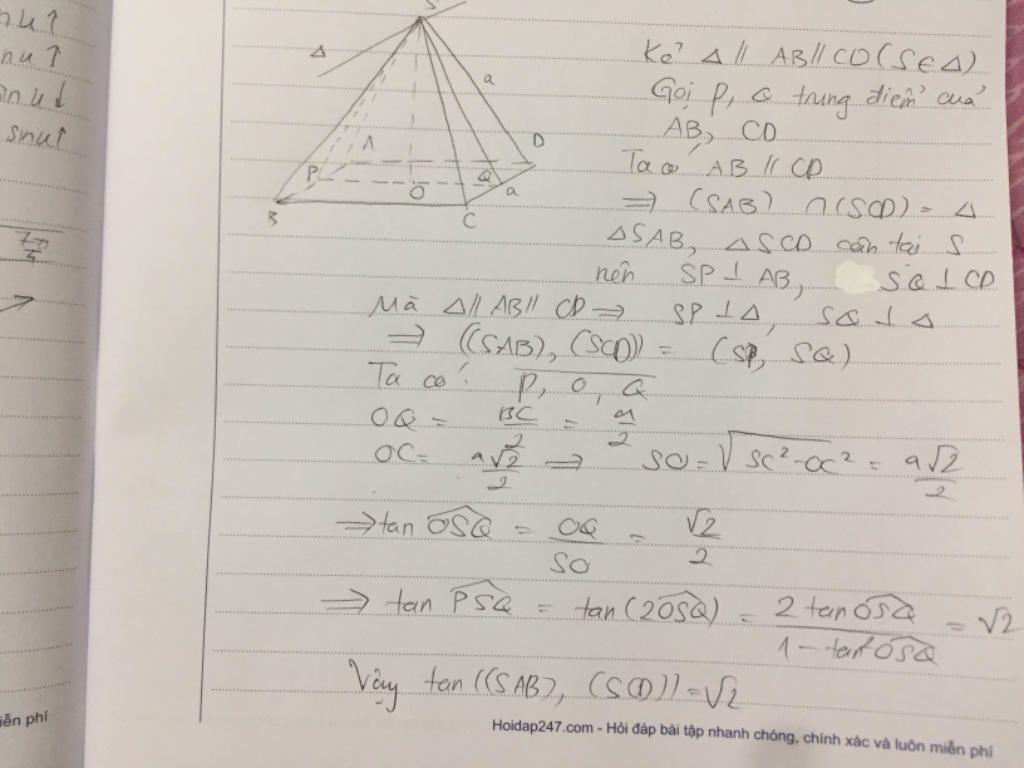 nu↑
nu↑
in u↓
sinu↑
7π/4
iễn phí
S
Δ
a
A
D
P
Q
a
O
B
C
Kẻ Δ // AB // CD (S ∈ Δ)
Gọi P, Q trung điểm của
AB, CD
Ta có AB // CD
⇒ (SAB) ∩ (SCD) = Δ
ΔSAB, ΔSCD cân tại S
nên SP ⊥ AB, SQ ⊥ CD
Mà Δ // AB // CD ⇒ SP ⊥ Δ, SQ ⊥ Δ
⇒ ((SAB), (SCD)) = (SP, SQ)
Ta có: P, O, Q
OQ = BC/2 = a/2
OC = a√2/2 ⇒ SO = √(SC² - OC²) = a√2/2
⇒ tan OSQ = OQ/SO = √2/2
⇒ tan PSQ = tan(2OSQ) = 2 tan OSQ / 1 - tan² OSQ = √2
Vậy tan ((SAB), (SCD)) = √2
Hoidap247.com - Hỏi đáp bài tập nhanh chóng, chính xác và luôn miễn phí